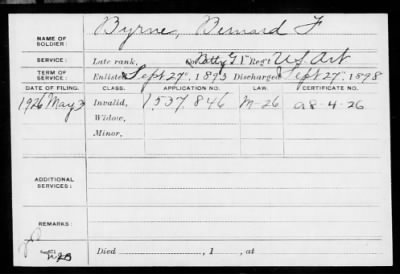 NAME OF SOLDIER: Byrne, Bernard F
SERVICE: Late rank, Batty G 1" Reg't US Art
TERM OF SERVICE: Enlisted Sept 27", 1893 Discharged Sept 27", 1898
DATE OF FILING. CLASS. APPLICATION NO. LAW. CERTIFICATE NO.
1926 May 3 Invalid, 1537,846 M-26 a8-4-26
Widow,
Minor,
ADDITIONAL SERVICES:
REMARKS:
Died , 1 , at